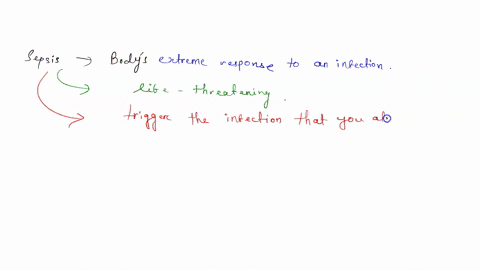 Sepsis → Body's extreme response to an infection.
life - threatening.
trigger the infection that you al